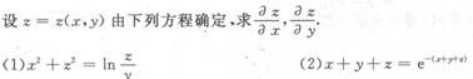 设 z = z(x,y) 由下列方程确定,求 ∂z/∂x, ∂z/∂y.
(1)x² + z² = ln z/y (2)x + y + z = e^{-(x+y+z)}